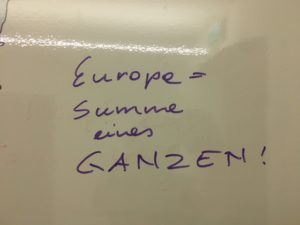 Europa =
Summe
eines
GANZEN!